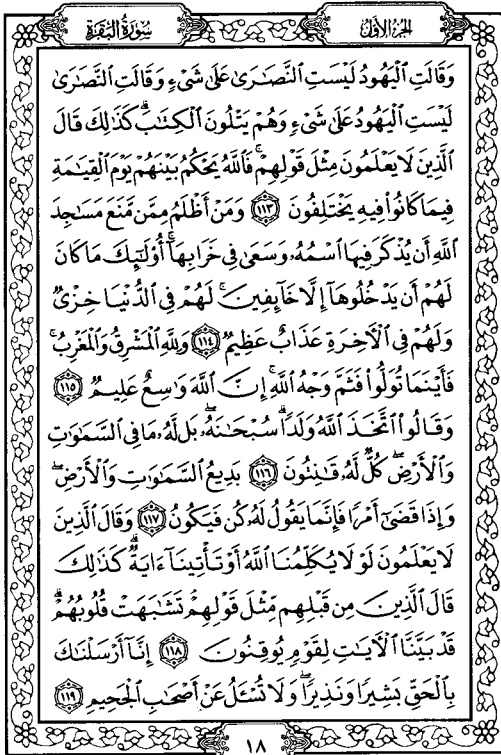 سُورَةُ الْبَقَرَةِ
الجُزْءُ الْأَوَّلُ
وَقَالَتِ ٱلْيَهُودُ لَيْسَتِ ٱلنَّصَـٰرَىٰ عَلَىٰ شَىْءٍ وَقَالَتِ ٱلنَّصَـٰرَىٰ
لَيْسَتِ ٱلْيَهُودُ عَلَىٰ شَىْءٍ وَهُمْ يَتْلُونَ ٱلْكِتَـٰبَ ۗ كَذَٰلِكَ قَالَ
ٱلَّذِينَ لَا يَعْلَمُونَ مِثْلَ قَوْلِهِمْ ۚ فَٱللَّهُ يَحْكُمُ بَيْنَهُمْ يَوْمَ ٱلْقِيَـٰمَةِ
فِيمَا كَانُوا۟ فِيهِ يَخْتَلِفُونَ ﴿١١٣﴾ وَمَنْ أَظْلَمُ مِمَّن مَّنَعَ مَسَـٰجِدَ
ٱللَّهِ أَن يُذْكَرَ فِيهَا ٱسْمُهُۥ وَسَعَىٰ فِى خَرَابِهَآ ۚ أُو۟لَـٰٓئِكَ مَا كَانَ
لَهُمْ أَن يَدْخُلُوهَآ إِلَّا خَآئِفِينَ ۚ لَهُمْ فِى ٱلدُّنْيَا خِزْىٌ
وَلَهُمْ فِى ٱلْـَٔاخِرَةِ عَذَابٌ عَظِيمٌ ﴿١١٤﴾ وَلِلَّهِ ٱلْمَشْرِقُ وَٱلْمَغْرِبُ ۚ
فَأَيْنَمَا تُوَلُّوا۟ فَثَمَّ وَجْهُ ٱللَّهِ ۚ إِنَّ ٱللَّهَ وَٰسِعٌ عَلِيمٌ ﴿١١٥﴾
وَقَالُوا۟ ٱتَّخَذَ ٱللَّهُ وَلَدًا ۗ سُبْحَـٰنَهُۥ ۖ بَل لَّهُۥ مَا فِى ٱلسَّمَـٰوَٰتِ
وَٱلْأَرْضِ ۖ كُلٌّ لَّهُۥ قَـٰنِتُونَ ﴿١١٦﴾ بَدِيعُ ٱلسَّمَـٰوَٰتِ وَٱلْأَرْضِ ۖ
وَإِذَا قَضَىٰٓ أَمْرًا فَإِنَّمَا يَقُولُ لَهُۥ كُن فَيَكُونُ ﴿١١٧﴾ وَقَالَ ٱلَّذِينَ
لَا يَعْلَمُونَ لَوْلَا يُكَلِّمُنَا ٱللَّهُ أَوْ تَأْتِينَآ ءَايَةٌ ۗ كَذَٰلِكَ
قَالَ ٱلَّذِينَ مِن قَبْلِهِم مِّثْلَ قَوْلِهِمْ ۘ تَشَـٰبَهَتْ قُلُوبُهُمْ ۗ
قَدْ بَيَّنَّا ٱلْـَٔايَـٰتِ لِقَوْمٍ يُوقِنُونَ ﴿١١٨﴾ إِنَّآ أَرْسَلْنَـٰكَ
بِٱلْحَقِّ بَشِيرًا وَنَذِيرًا ۖ وَلَا تُسْـَٔلُ عَنْ أَصْحَـٰبِ ٱلْجَحِيمِ ﴿١١٩﴾
١٨